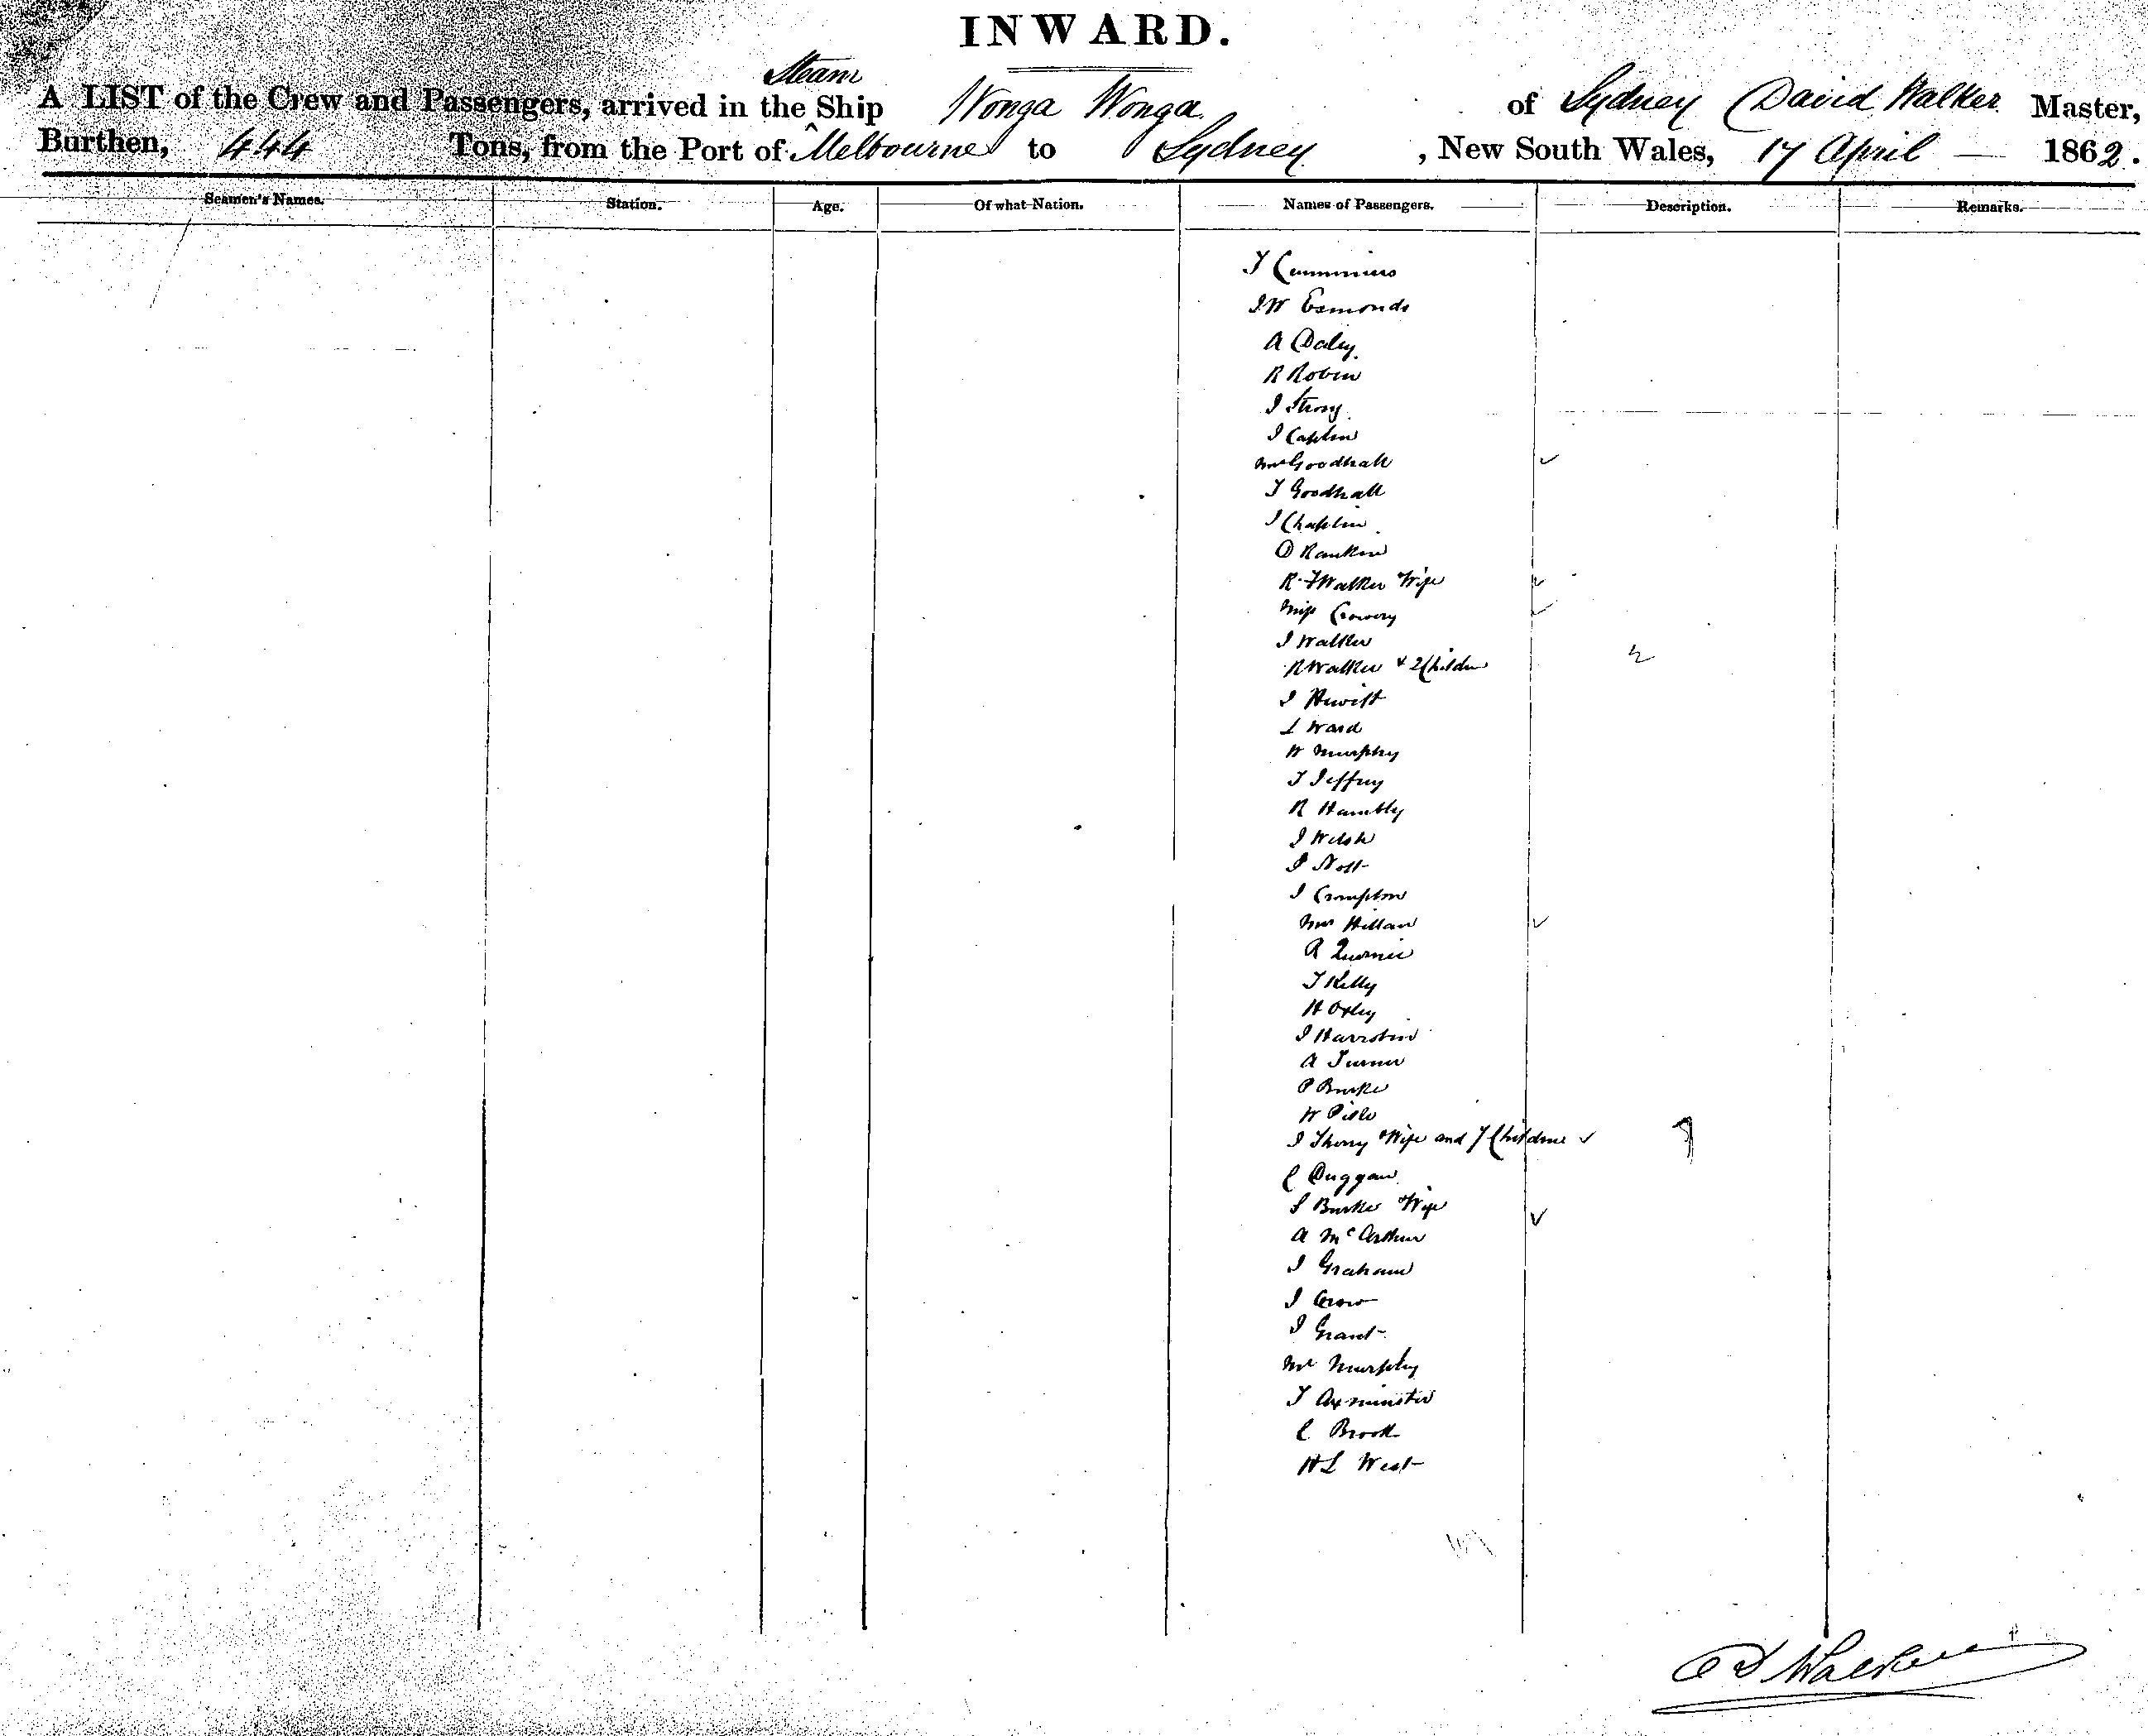 INWARD.
Steam
A LIST of the Crew and Passengers, arrived in the ^ Ship Wonga Wonga of Sydney David Walker Master,
Burthen, 444 Tons, from the Port of Melbourne to Sydney, New South Wales, 17 April — 1862.
Seamen's Names. Station. Age. Of what Nation. Names of Passengers. Description. Remarks.
T Cummins
J W Esmonds
A Daley
R Robin
J Strong
J Caplin
Mrs Goodhall ✓
T Goodhall
J Chaplin
D Rankin
R T Walker Wife ✓
Miss ✓
J Walker
R Walker & 2 Children 2
J Hewitt
L Ward
W Murphy
T Jeffrey
R Hambly
J Welsh
J Nott
J Crompton
Mrs Hillan ✓
R
T Kelly
H Oxley
J
A Turner
P Burke
W
J Wife and 7 Children ✓ 7
C Duggan
S Burke Wife ✓
A McArthur
J Graham
J Crow
J Grant
Mr Murphy
T Axminster
C Brook
H L West
D Walker